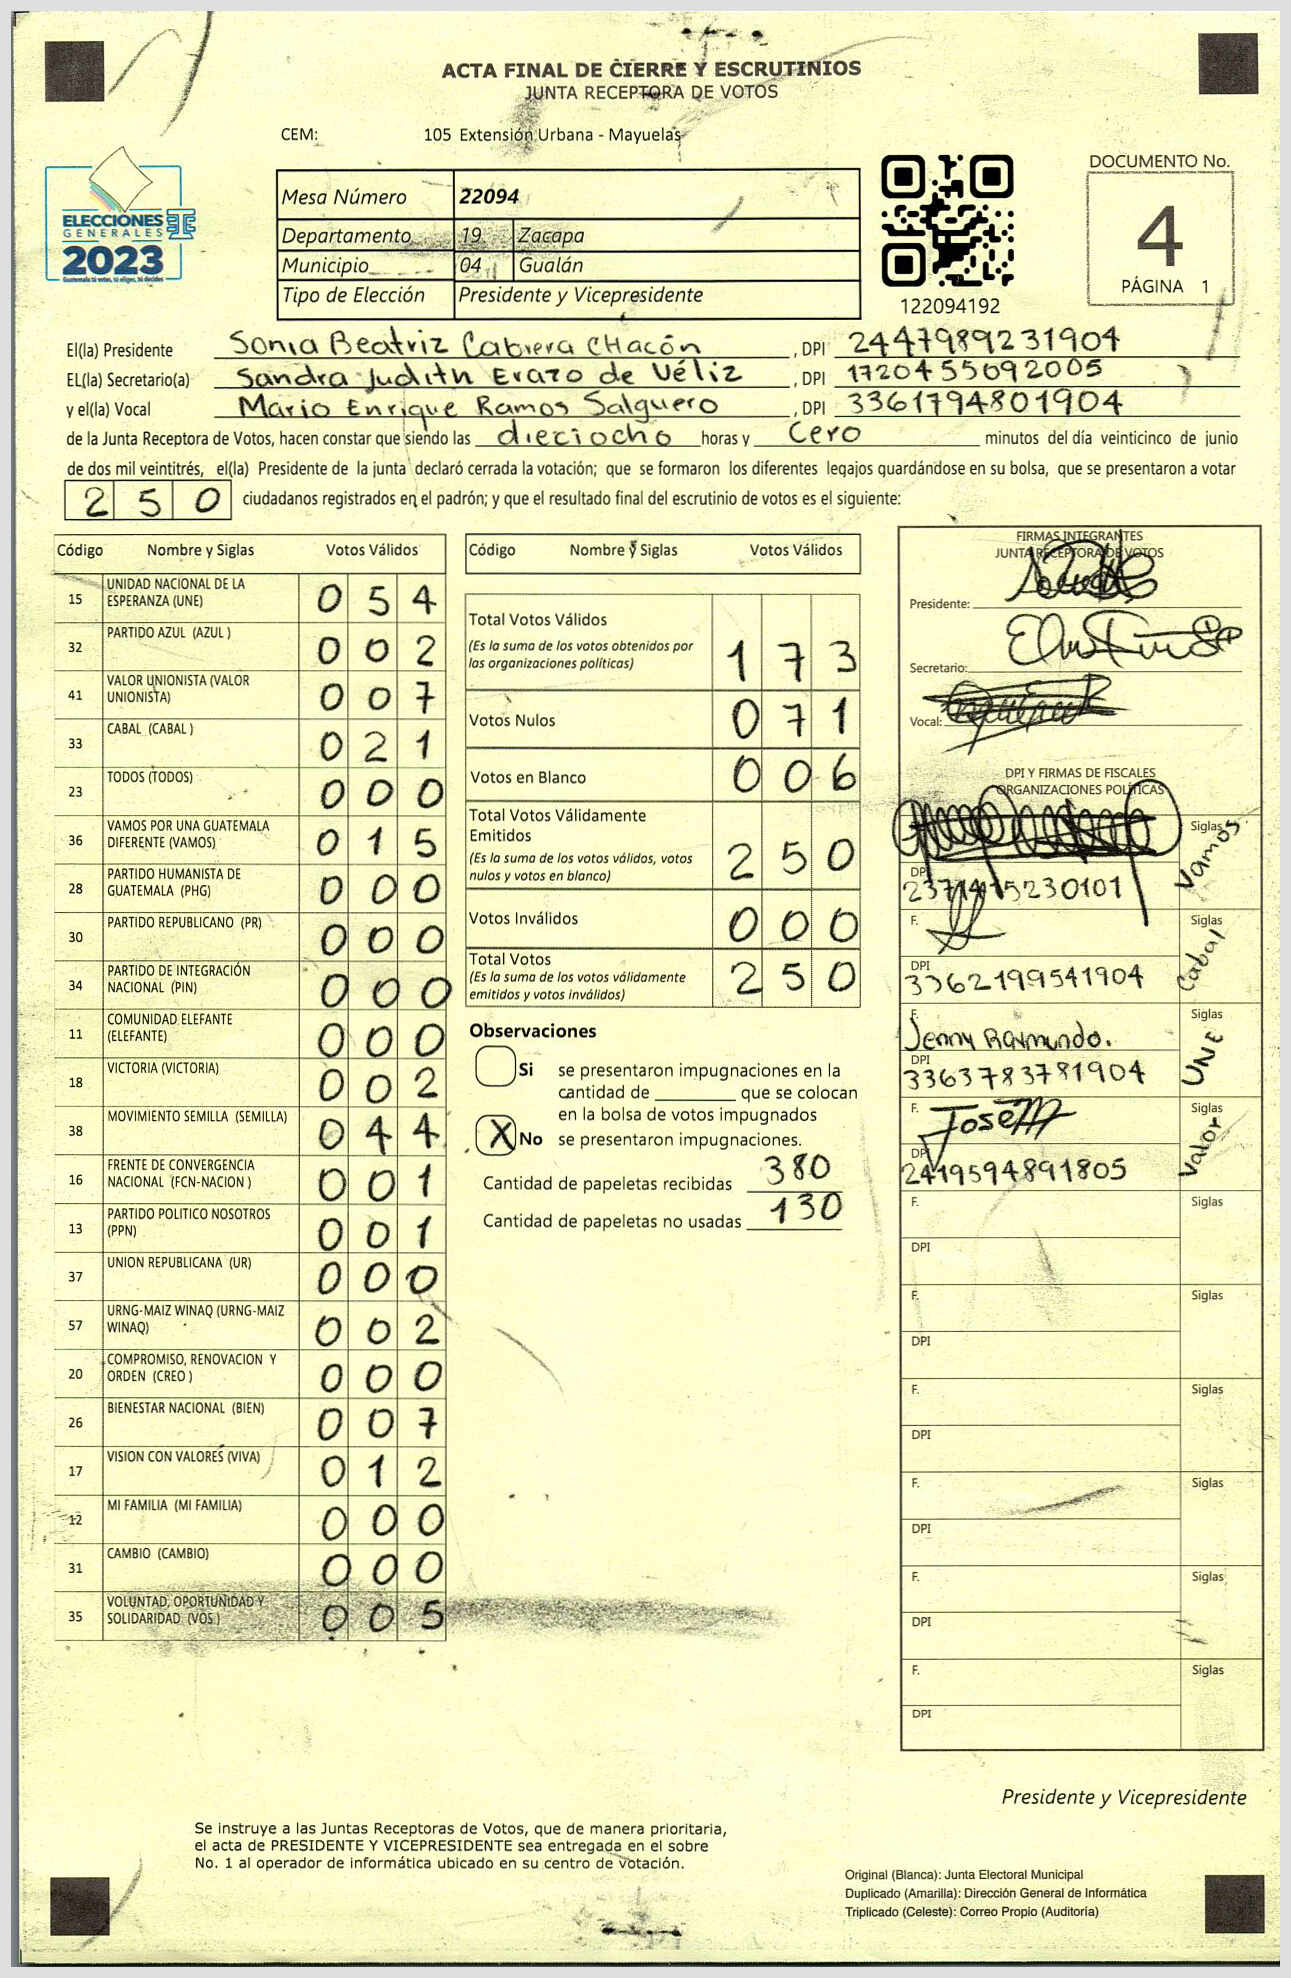 ACTA FINAL DE CIERRE Y ESCRUTINIOS
JUNTA RECEPTORA DE VOTOS
CEM: 105 Extensión Urbana - Mayuelas
ELECCIONES
GENERALES
2023
Guatemala tú votas, tú eliges, tú decides
Mesa Número 22094
Departamento 19 Zacapa
Municipio 04 Gualán
Tipo de Elección Presidente y Vicepresidente
122094192
DOCUMENTO No.
4
PÁGINA 1
El(la) Presidente Sonia Beatriz Cabrera CHacón , DPI 2447989231904
EL(la) Secretario(a) Sandra Judith Erazo de Véliz , DPI 1720455692005
y el(la) Vocal Mario Enrique Ramos Salguero , DPI 3361794801904
de la Junta Receptora de Votos, hacen constar que siendo las dieciocho horas y Cero minutos del día veinticinco de junio
de dos mil veintitrés, el(la) Presidente de la junta declaró cerrada la votación; que se formaron los diferentes legajos guardándose en su bolsa, que se presentaron a votar
250 ciudadanos registrados en el padrón; y que el resultado final del escrutinio de votos es el siguiente:
Código Nombre y Siglas Votos Válidos
15 UNIDAD NACIONAL DE LA ESPERANZA (UNE) 054
32 PARTIDO AZUL (AZUL ) 002
41 VALOR UNIONISTA (VALOR UNIONISTA) 007
33 CABAL (CABAL ) 021
23 TODOS (TODOS) 000
36 VAMOS POR UNA GUATEMALA DIFERENTE (VAMOS) 015
28 PARTIDO HUMANISTA DE GUATEMALA (PHG) 000
30 PARTIDO REPUBLICANO (PR) 000
34 PARTIDO DE INTEGRACIÓN NACIONAL (PIN) 000
11 COMUNIDAD ELEFANTE (ELEFANTE) 000
18 VICTORIA (VICTORIA) 002
38 MOVIMIENTO SEMILLA (SEMILLA) 044
16 FRENTE DE CONVERGENCIA NACIONAL (FCN-NACION ) 001
13 PARTIDO POLITICO NOSOTROS (PPN) 001
37 UNION REPUBLICANA (UR) 000
57 URNG-MAIZ WINAQ (URNG-MAIZ WINAQ) 002
20 COMPROMISO, RENOVACION Y ORDEN (CREO ) 000
26 BIENESTAR NACIONAL (BIEN) 007
17 VISION CON VALORES (VIVA) 012
12 MI FAMILIA (MI FAMILIA) 000
31 CAMBIO (CAMBIO) 000
35 VOLUNTAD, OPORTUNIDAD Y SOLIDARIDAD (VOS ) 005
Código Nombre y Siglas Votos Válidos
Total Votos Válidos 173
(Es la suma de los votos obtenidos por
las organizaciones políticas)
Votos Nulos 071
Votos en Blanco 006
Total Votos Válidamente
Emitidos 250
(Es la suma de los votos válidos, votos
nulos y votos en blanco)
Votos Inválidos 000
Total Votos 250
(Es la suma de los votos válidamente
emitidos y votos inválidos)
Observaciones
Si se presentaron impugnaciones en la
cantidad de ________ que se colocan
en la bolsa de votos impugnados
X No se presentaron impugnaciones.
Cantidad de papeletas recibidas 380
Cantidad de papeletas no usadas 130
FIRMAS INTEGRANTES
JUNTA RECEPTORA DE VOTOS
Presidente:
Secretario:
Vocal:
DPI Y FIRMAS DE FISCALES
ORGANIZACIONES POLÍTICAS
Siglas Vamos
DPI 2371415230101
F. Siglas Cabal
DPI 3362199541904
F. Jenny Raymundo. Siglas UNE
DPI 3363783781904
F. José Siglas Valor
DPI 2419594891805
F. Siglas
DPI
F. Siglas
DPI
F. Siglas
DPI
F. Siglas
DPI
F. Siglas
DPI
F. Siglas
DPI
Presidente y Vicepresidente
Se instruye a las Juntas Receptoras de Votos, que de manera prioritaria,
el acta de PRESIDENTE Y VICEPRESIDENTE sea entregada en el sobre
No. 1 al operador de informática ubicado en su centro de votación.
Original (Blanca): Junta Electoral Municipal
Duplicado (Amarilla): Dirección General de Informática
Triplicado (Celeste): Correo Propio (Auditoría)